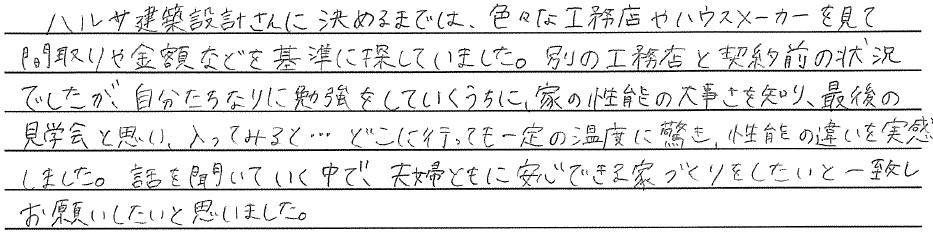 ハルサ建築設計さんに決めるまでは、色々な工務店やハウスメーカーを見て
間取りや金額などを基準に探していました。別の工務店と契約前の状況
でしたが、自分たちなりに勉強をしていくうちに、家の性能の大事さを知り、最後の
見学会と思い、入ってみると…どこに行っても一定の温度に驚き、性能の違いを実感
しました。話を聞いていく中で、夫婦ともに安心できる家づくりをしたいと一致し
お願いしたいと思いました。